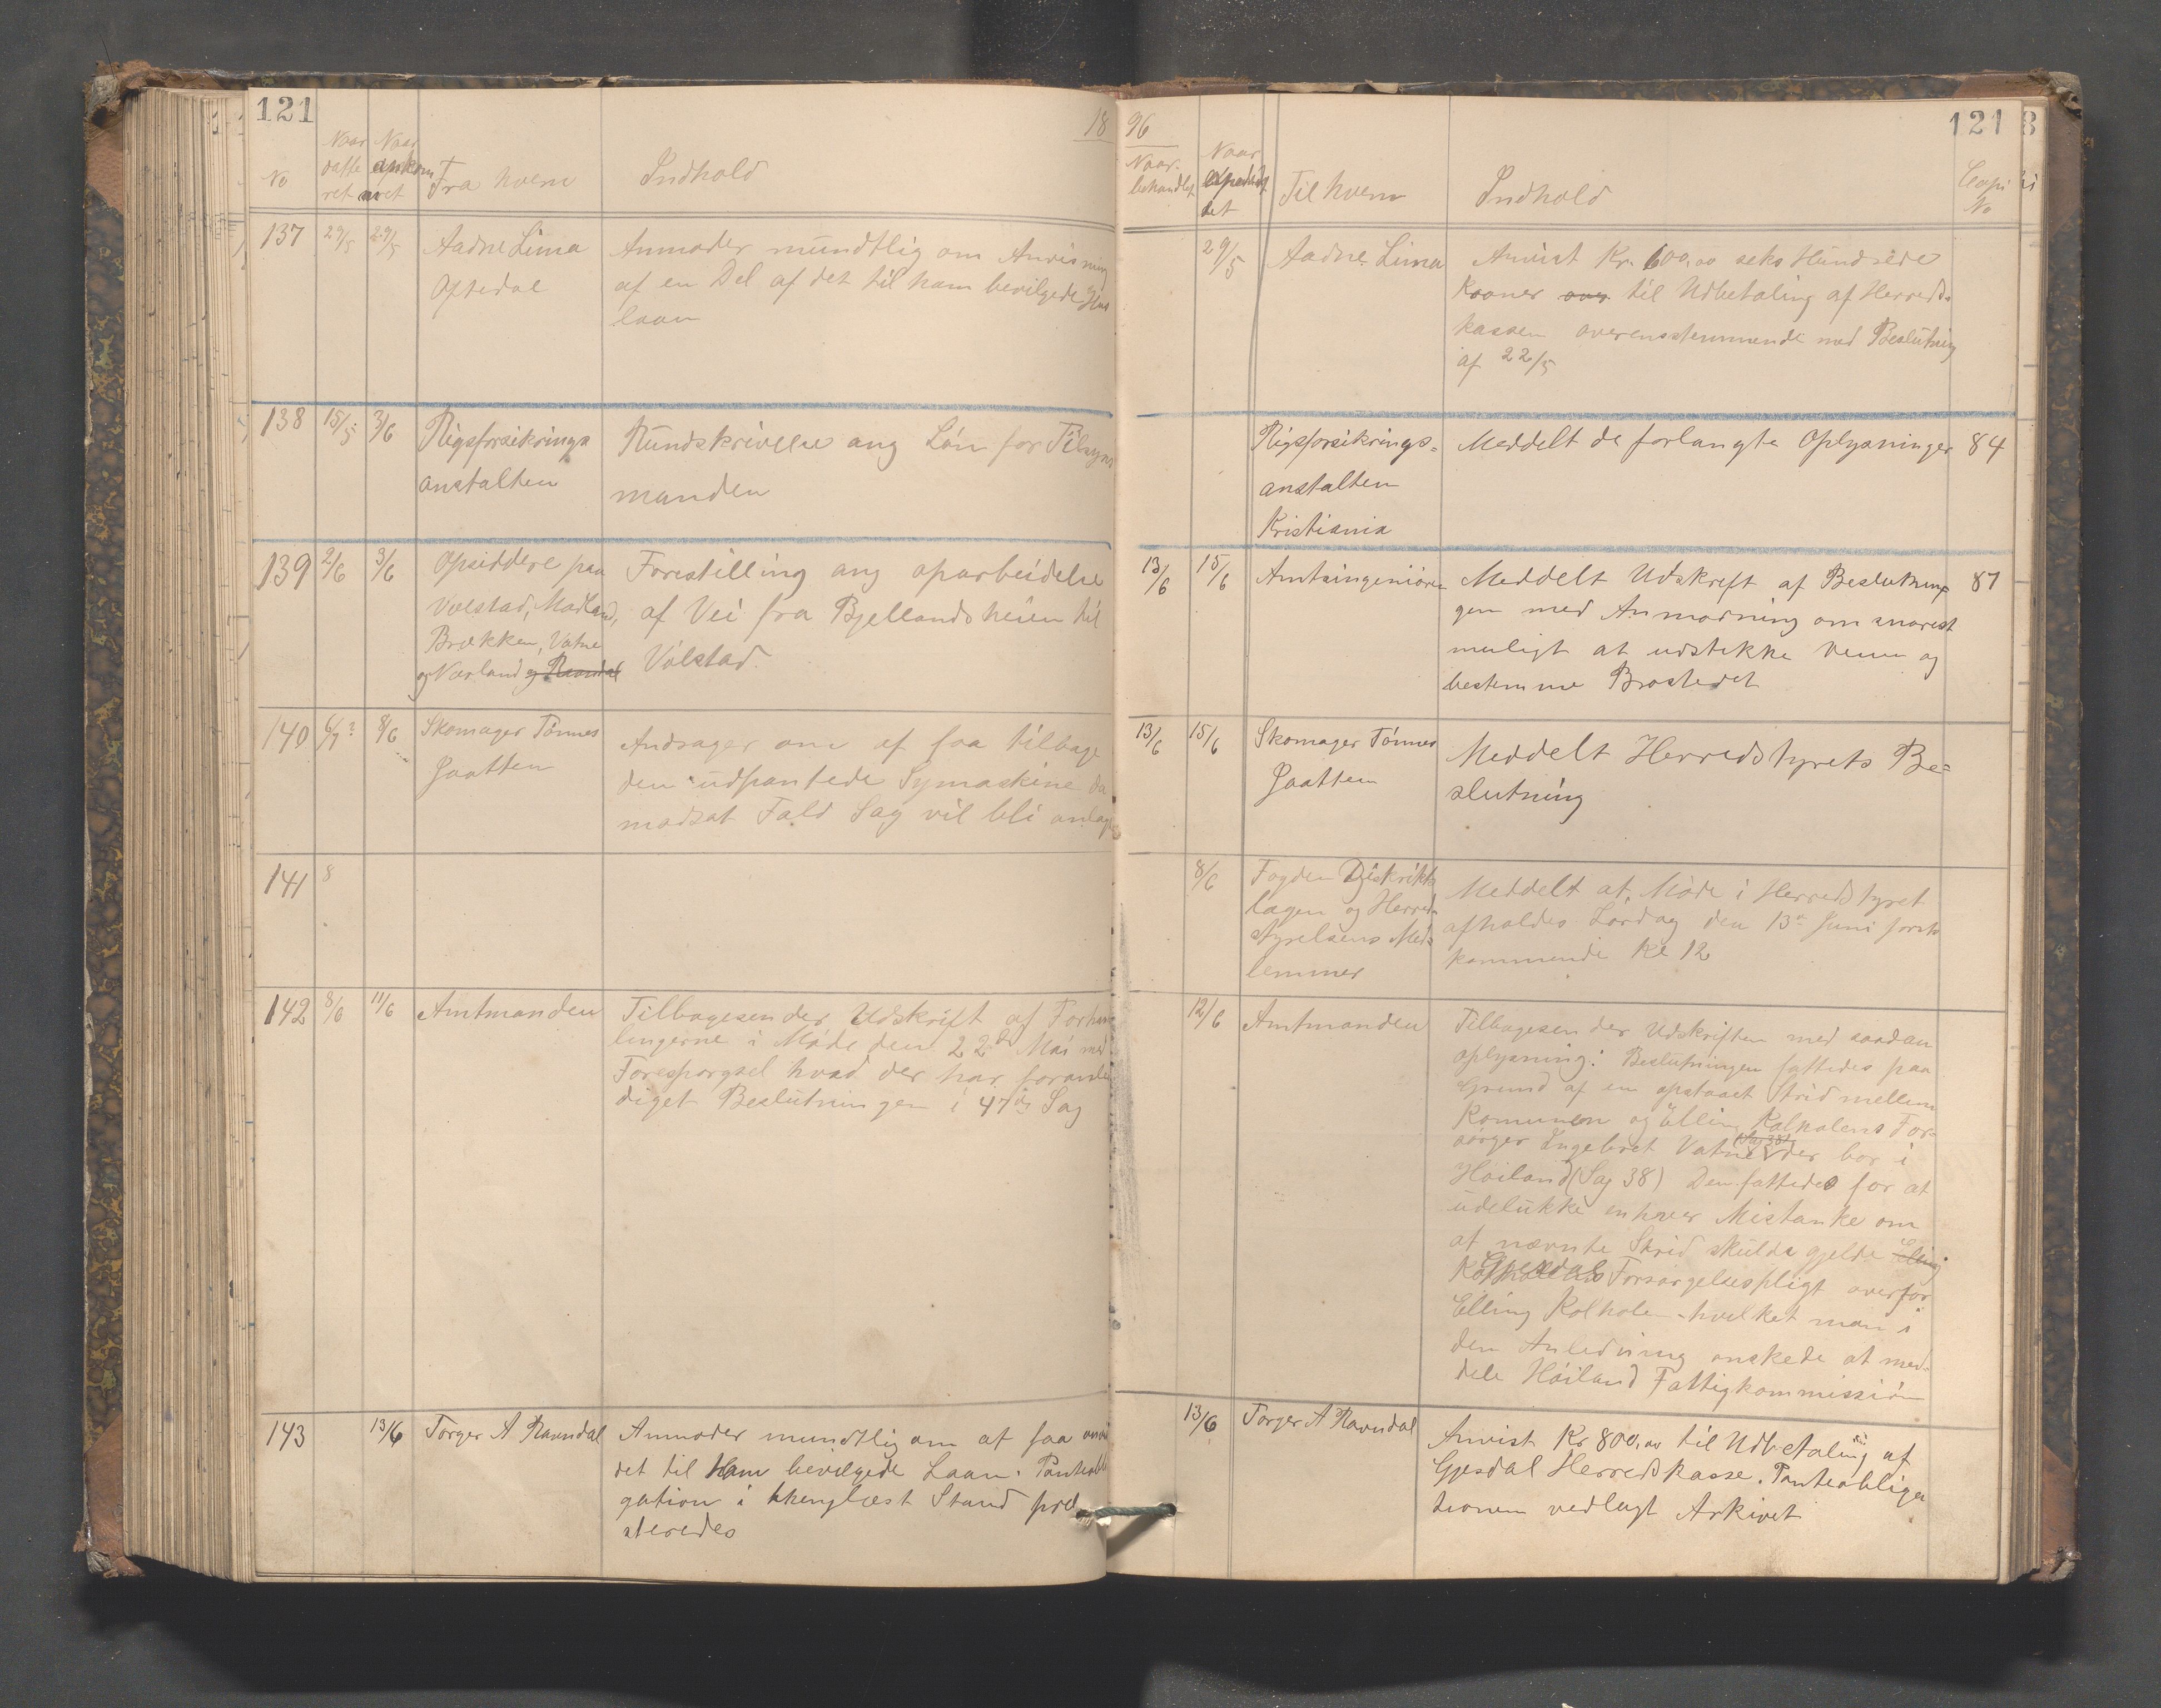 121
18
No
Naar
datte
ret
Naar
ankom
met
Fra hvem
Indhold
137
29/5
29/5
Aadne Lima
Opstedal
Anmoder mundtlig om Anvisning
af en Del af det til ham bevilgede Hus
laan
138
15/5
3/6
Rigsforsikrings
anstalten
Rundskrivelse ang Løn for Tilsyns
manden
139
2/6
3/6
Opsiddere paa
Vølstad, Madland,
Brækken, Vatne
og Værland og Ravndal
Forestilling ang oparbeidelse
af Vei fra Bjellandsheien til
Vølstad.
140
6/7?
8/6
Skomager Tønnes
Jaatten
Andrager om at faa tilbage
den udpantede Symaskine da
modsat Fald Sag vil bli anlagt
141
8
142
8/6
11/6
Amtmanden
Tilbagesender Udskrift af Forhand
lingerne i Møde den 22de Mai med
Forespørgsel hvad der har foranle
diget Beslutningen i 47de Sag
143
13/6
Torger A Ravndal
Anmoder mundtlig om at faa anvist
det til Ham bevilgede Laan. Panteobli
gation i thenglæst Stand præ
steredes
96
121
Naar
behandlet
Naar
expedi
det
Til hvem
Indhold
Copi
No
29/5
Aadne Lima
Anvist Kr. 600,00 seks Hundrede
Kroner over til Udbetaling af Herreds
kassen overensstemmende med Beslutning
af 22/5
Rigsforsikrings-
anstalten
Kristiania
Meddelt de forlangte Oplysninger
84
13/6
15/6
Amtsingeniøren
Meddelt Udskrift af Beslutnin
gen med Anmodning om snarest
muligt at udstikke Veien og
bestemme Brostedet
87
13/6
15/6
Skomager Tønnes
Jaatten
Meddelt Herredstyrets Be=
slutning
8/6
Fogden Distrikts
lægen og Herreds
styrelsens Med
lemmer
Meddelt at Møde i Herredstyret
afholdes Lørdag den 13de Juni førsk
kommende Kl 12
12/6
Amtmanden
Tilbagesender Udskriften med saadan
oplysning: Beslutningen fattedes paa
Grund af en opstaaet Strid mellem
Komunen og Elling Kolholens For-
sørger Engebret Vatne (Sag 38) der bor i
Høiland (Sag 38) Den fattedes for at
udelukke enhver Mistanke om
at nævnte Strid skulde gjelde Elling
Kolholens Forsørgelsespligt overfor
Elling Kolholen - hvilket man i
den Anledning ønskede at med-
dele Høiland Fattigkommission
13/6
Torger A Ravndal
Anvist Kr 800,00 til Udbetaling af
Gjesdal Herredskasse. Panteobliga
tionen vedlagt Arkivet